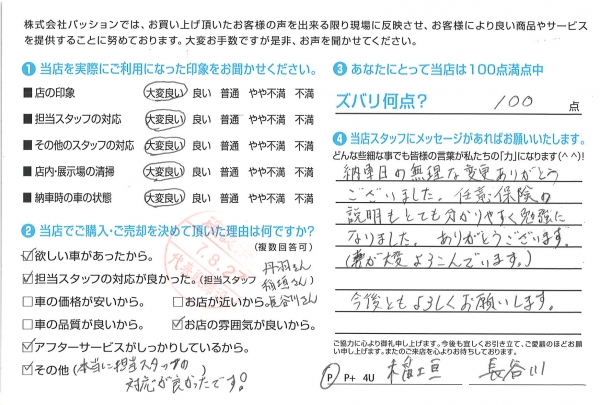 株式会社パッションでは、お買い上げ頂いたお客様の声を出来る限り現場に反映させ、お客様により良い商品やサービス
を提供することに努めております。大変お手数ですが是非、お声を聞かせてください。
❶ 当店を実際にご利用になった印象をお聞かせください。
■店の印象 大変良い 良い 普通 やや不満 不満
■担当スタッフの対応 大変良い 良い 普通 やや不満 不満
■その他のスタッフの対応 大変良い 良い 普通 やや不満 不満
■店内・展示場の清掃 大変良い 良い 普通 やや不満 不満
■納車時の車の状態 大変良い 良い 普通 やや不満 不満
❷ 当店でご購入・ご売却を決めて頂いた理由は何ですか?
(複数回答可)
☑欲しい車があったから。
☑担当スタッフの対応が良かった。(担当スタッフ 丹羽さん 稲垣さん 長谷川さん
□車の価格が安いから。 □お店が近いから。
□車の品質が良いから。 ☑お店の雰囲気が良いから。
☑アフターサービスがしっかりしているから。
☑その他(本当に担当スタッフの
対応が良かったです!
7.8.27
代表
❸ あなたにとって当店は100点満点中
ズバリ何点? 100 点
❹ 当店スタッフにメッセージがあればお願いいたします。
どんな些細な事でも皆様の言葉が私たちの「力」になります(^^)!
納車日の無理な変更ありがとう
ございました。任意保険の
説明もとても分かりやすく勉強に
なりました。ありがとうございます。
(妻が大変よろこんでいます。)
今後ともよろしくお願いします。
ご協力に心より御礼申し上げます。今後も宜しくお引き立て、ご愛顧のほどお願
い申し上げます。またのご来店を心よりお待ちしております。
P P+ 4U 稲垣 長谷川